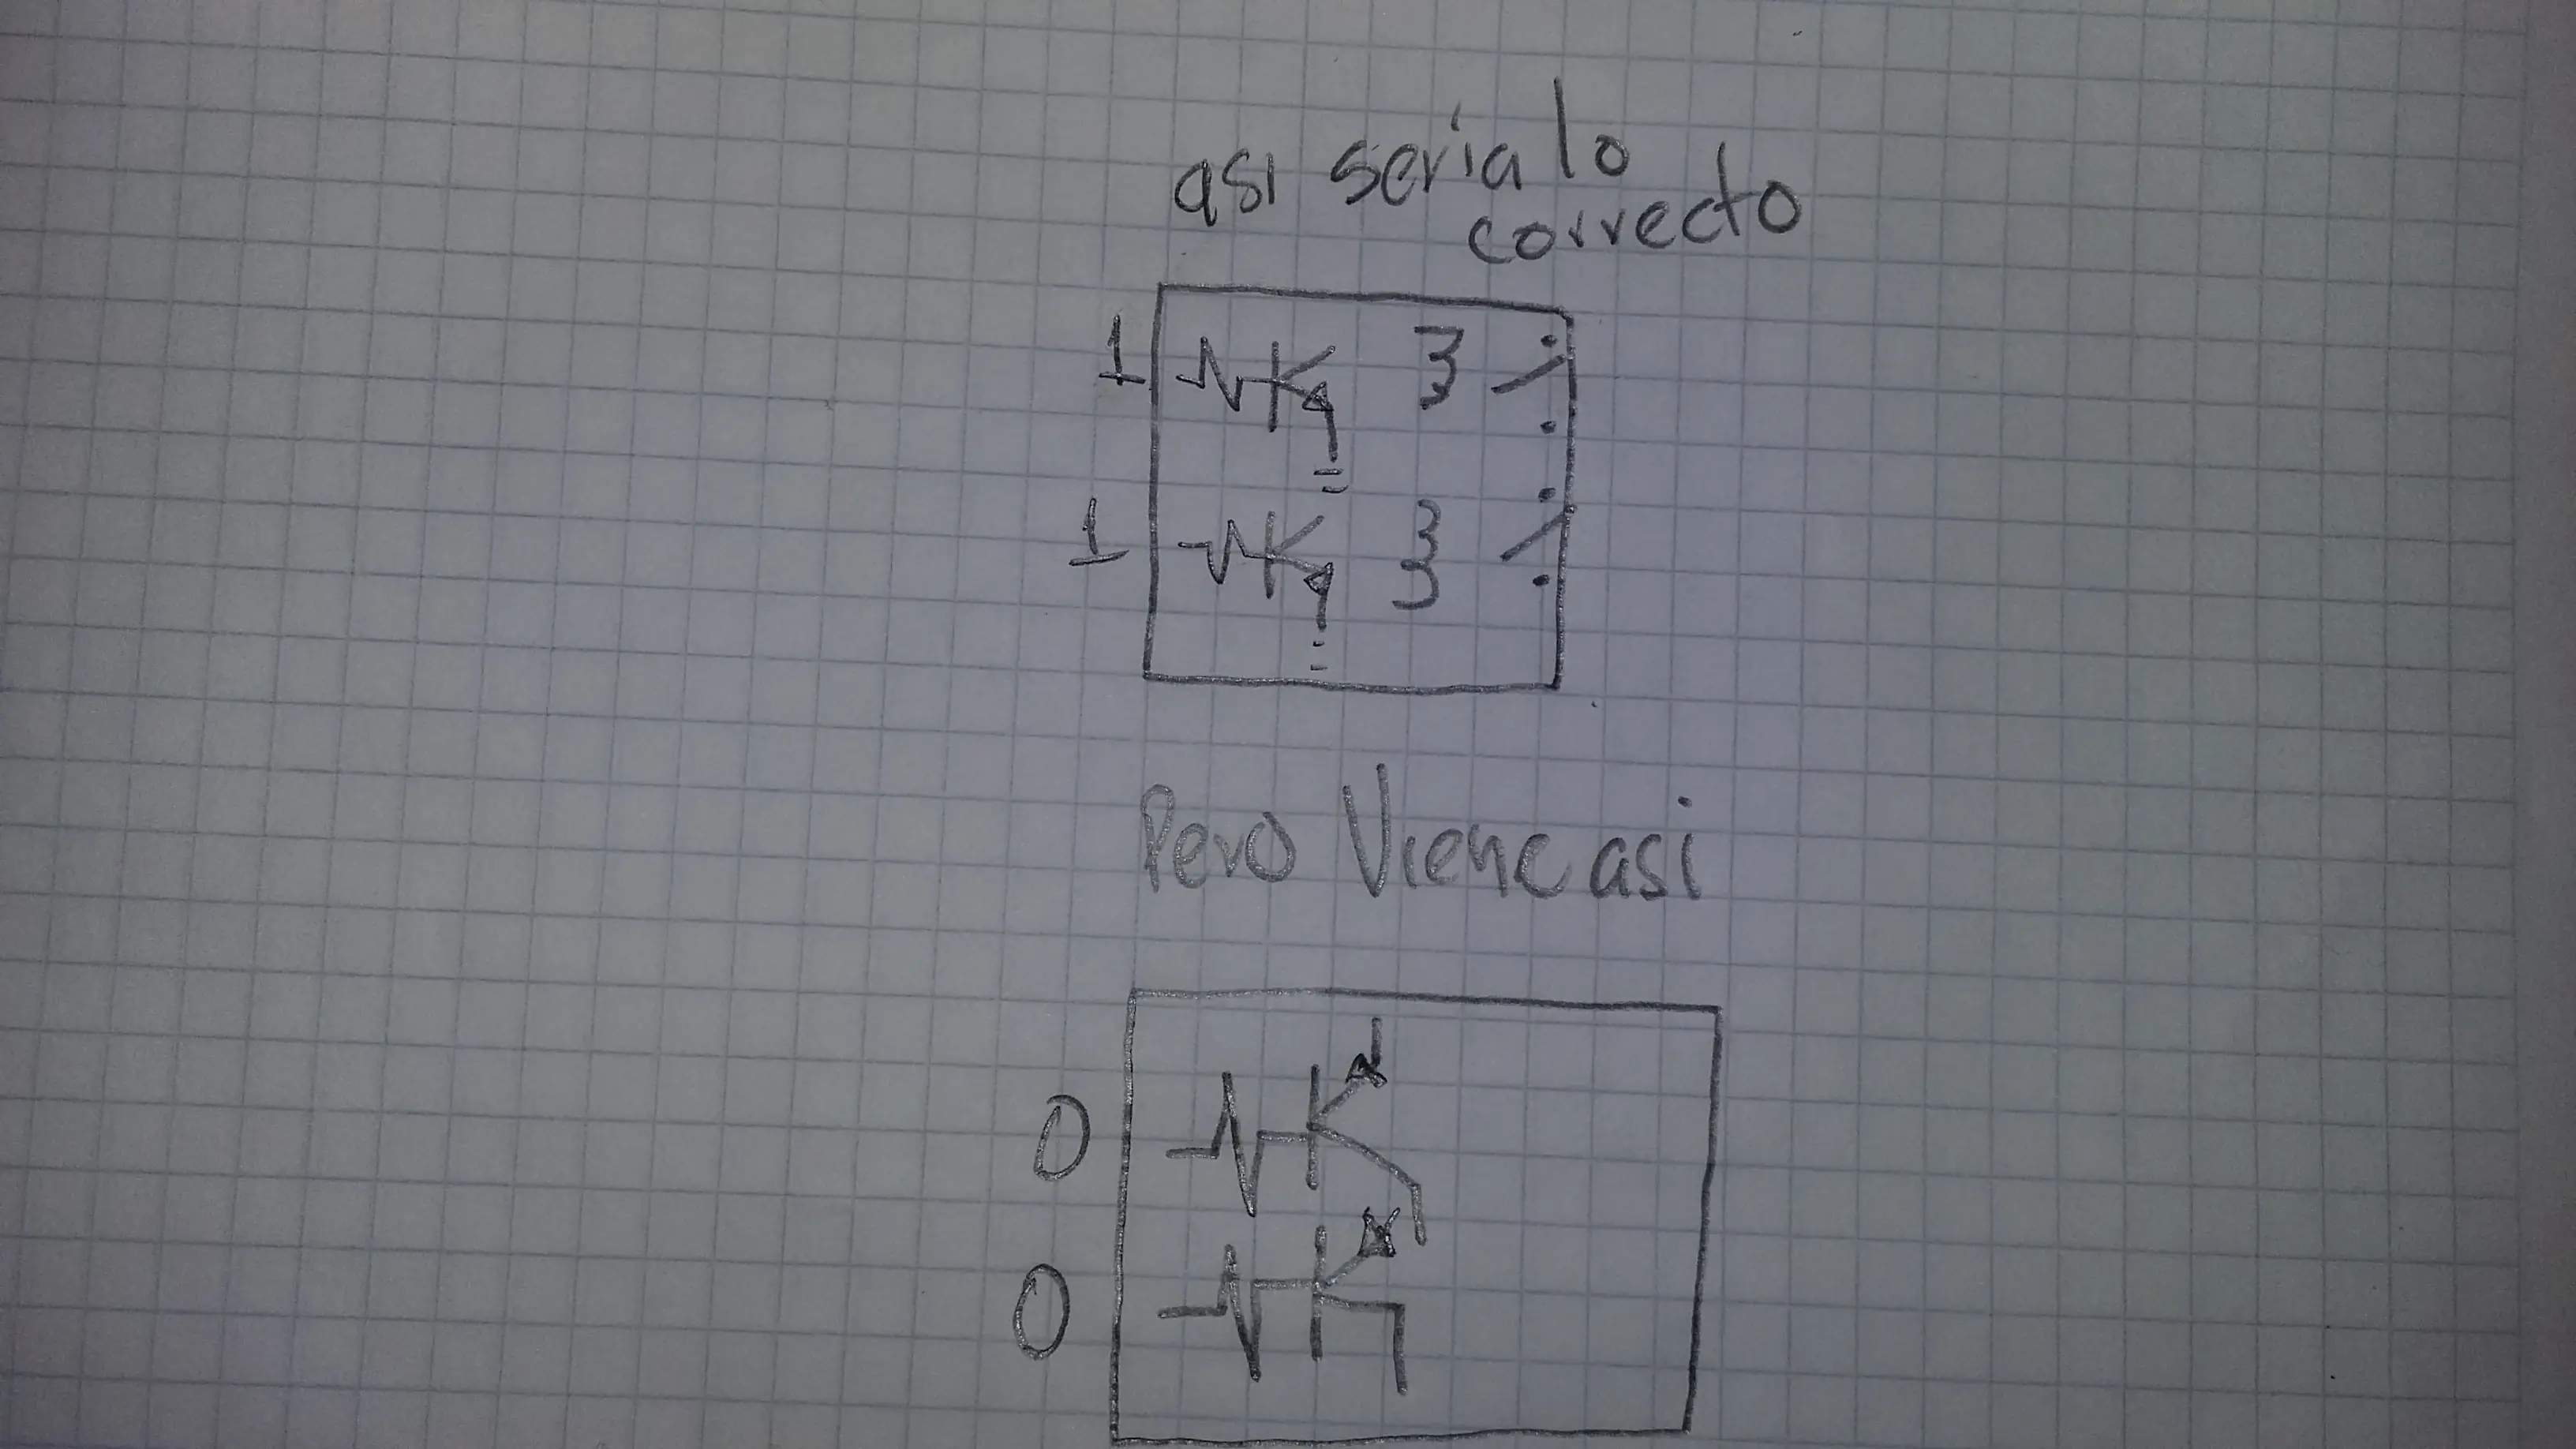 asi seria lo
correcto
1
1
Pero Viene asi
0
0